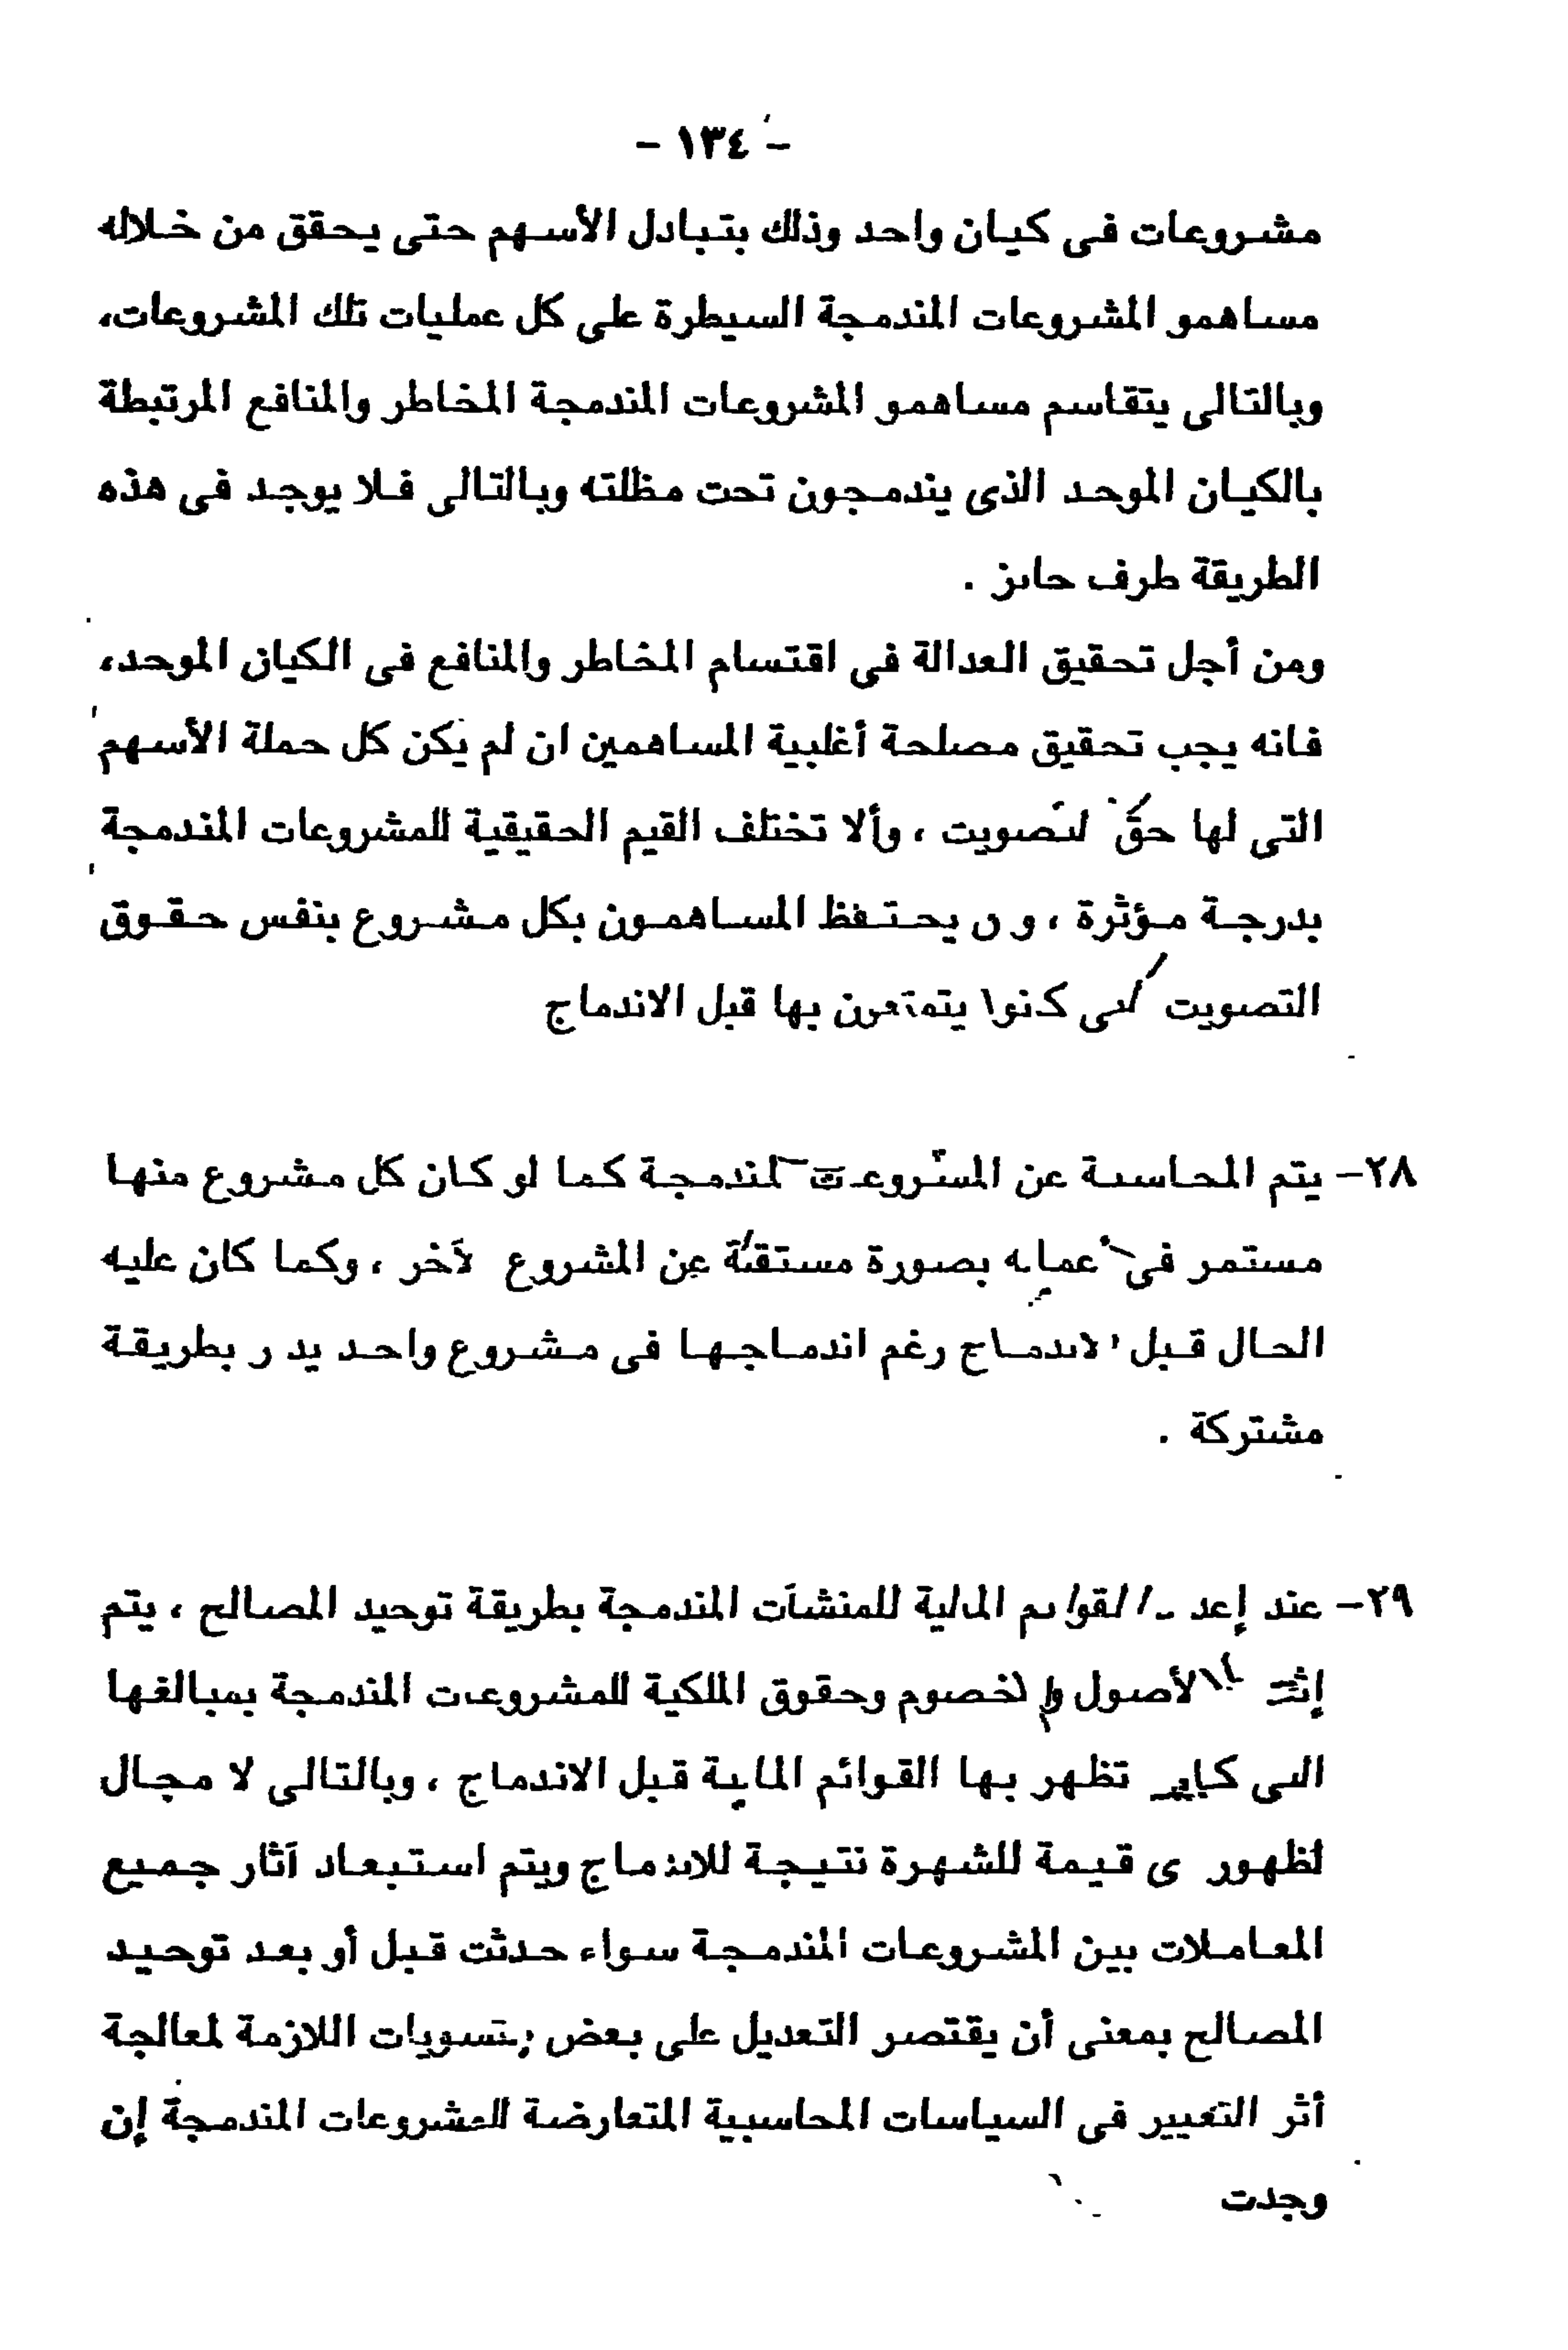 - ١٣٤ -
مشروعات فى كيان واحد وذلك بتبادل الأسهم حتى يحقق من خلاله
مساهمو المشروعات المندمجة السيطرة على كل عمليات تلك المشروعات،
وبالتالى يتقاسم مساهمو المشروعات المندمجة المخاطر والمنافع المرتبطة
بالكيان الموحد الذى يندمجون تحت مظلته وبالتالى فلا يوجد فى هذه
الطريقة طرف حائز .
ومن أجل تحقيق العدالة فى اقتسام المخاطر والمنافع فى الكيان الموحد،
فانه يجب تحقيق مصلحة أغلبية المساهمين ان لم يكن كل حملة الأسهم
التى لها حق التصويت ، وألا تختلف القيم الحقيقية للمشروعات المندمجة
بدرجة مؤثرة ، و يحتفظ المساهمون بكل مشروع بنفس حقوق
التصويت التى كانوا يتمتعون بها قبل الاندماج
٢٨- يتم المحاسبة عن المشروعات المندمجة كما لو كان كل مشروع منها
مستمر فى أعماله بصورة مستقلة عن المشروع الآخر ، وكما كان عليه
الحال قبل الاندماج رغم اندماجها فى مشروع واحد يدار بطريقة
مشتركة .
٢٩- عند إعداد القوائم المالية للمنشآت المندمجة بطريقة توحيد المصالح ، يتم
إثبات الأصول والخصوم وحقوق الملكية للمشروعات المندمجة بمبالغها
التى كانت تظهر بها القوائم المالية قبل الاندماج ، وبالتالى لا مجال
لظهور أى قيمة للشهرة نتيجة للاندماج ويتم استبعاد آثار جميع
المعاملات بين المشروعات المندمجة سواء حدثت قبل أو بعد توحيد
المصالح بمعنى أن يقتصر التعديل على بعض التسويات اللازمة لمعالجة
أثر التغيير فى السياسات المحاسبية المتعارضة للمشروعات المندمجة إن
وجدت